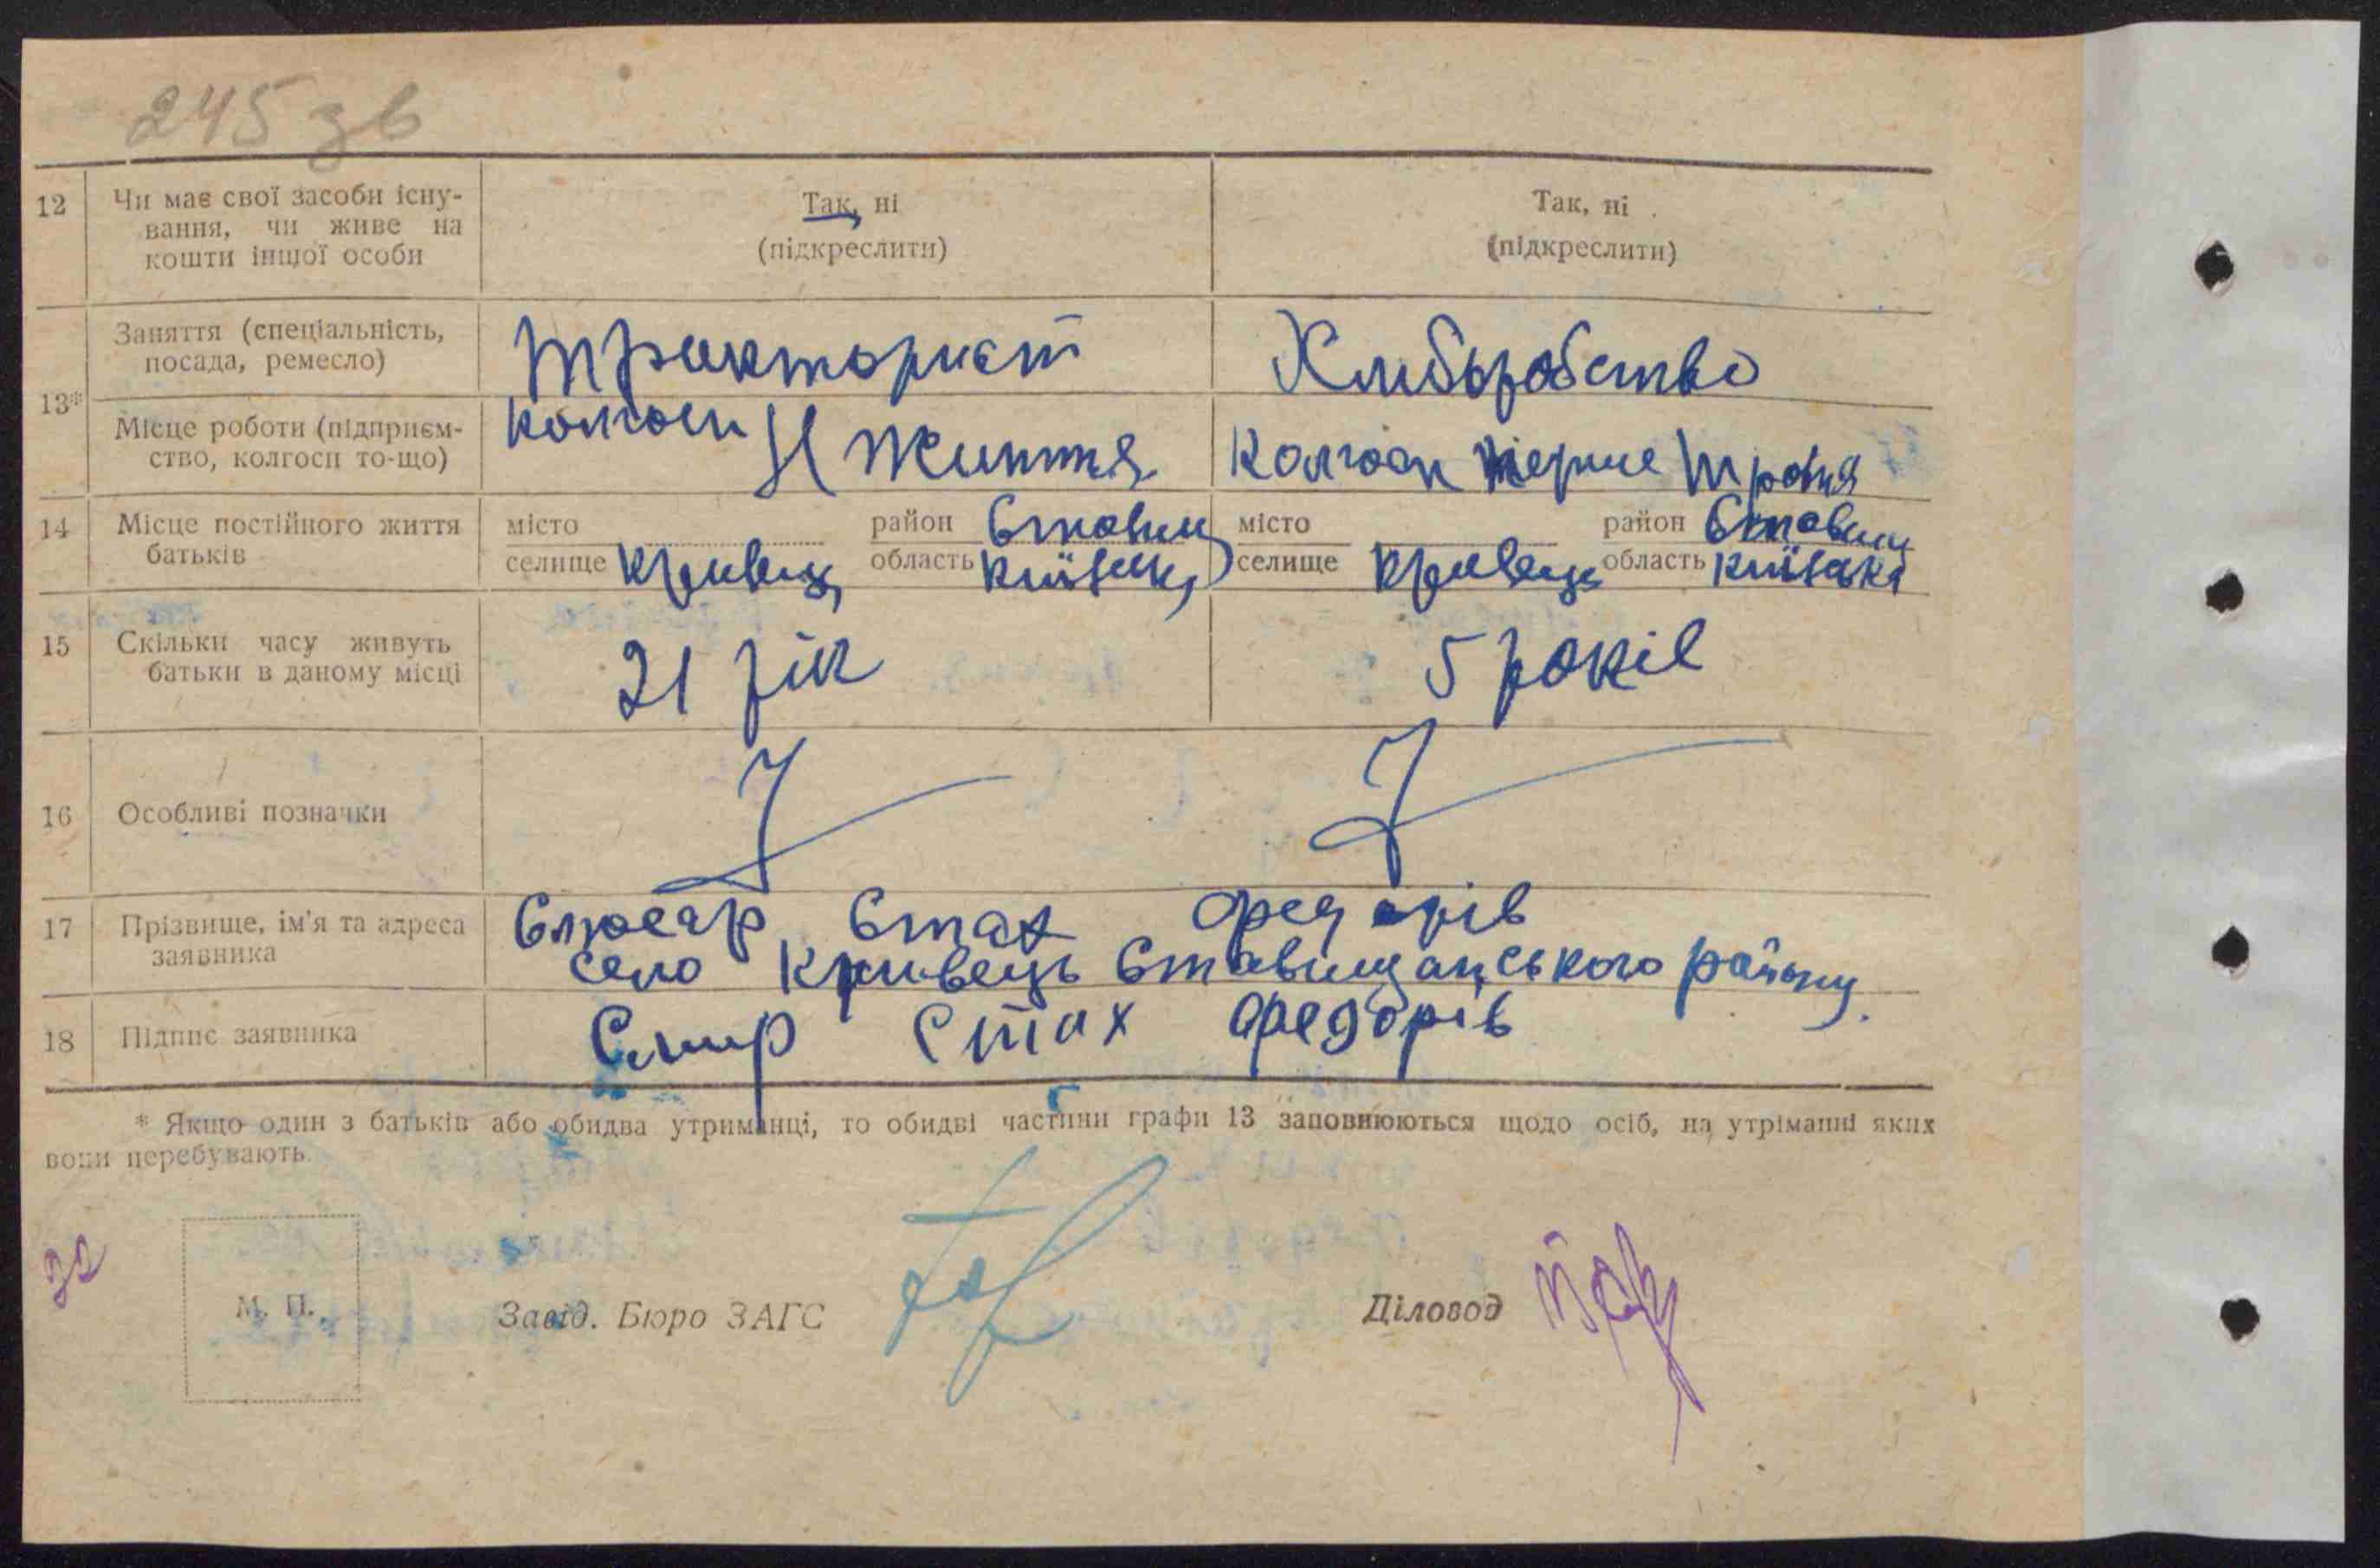 245 зв
12 Чи має свої засоби існу- Так, ні Так, ні
вання, чи живе на
кошти іншої особи (підкреслити) (підкреслити)
Заняття (спеціальність, Тракторист Хліборобство
посада, ремесло)
13*
Місце роботи (підприєм- Колгосп Н Життя Колгосп Перше Травня
ство, колгосп то-що)
14 Місце постійного життя місто район Ставищ місто район Ставищ
батьків селище Кривець область Київська селище Кривець область Київська
15 Скільки часу живуть 21 рік 5 років
батьки в даному місці
16 Особливі позначки
17 Прізвище, ім'я та адреса Слюсар Стах Федорів
заявника село Кривець Ставищанського району.
18 Підпис заявника Стах Федорів
* Якщо один з батьків або обидва утриманці, то обидві частини графи 13 заповнюються щодо осіб, на утріманні яких
вони перебувають.
М. П. Завід. Бюро ЗАГС Діловод